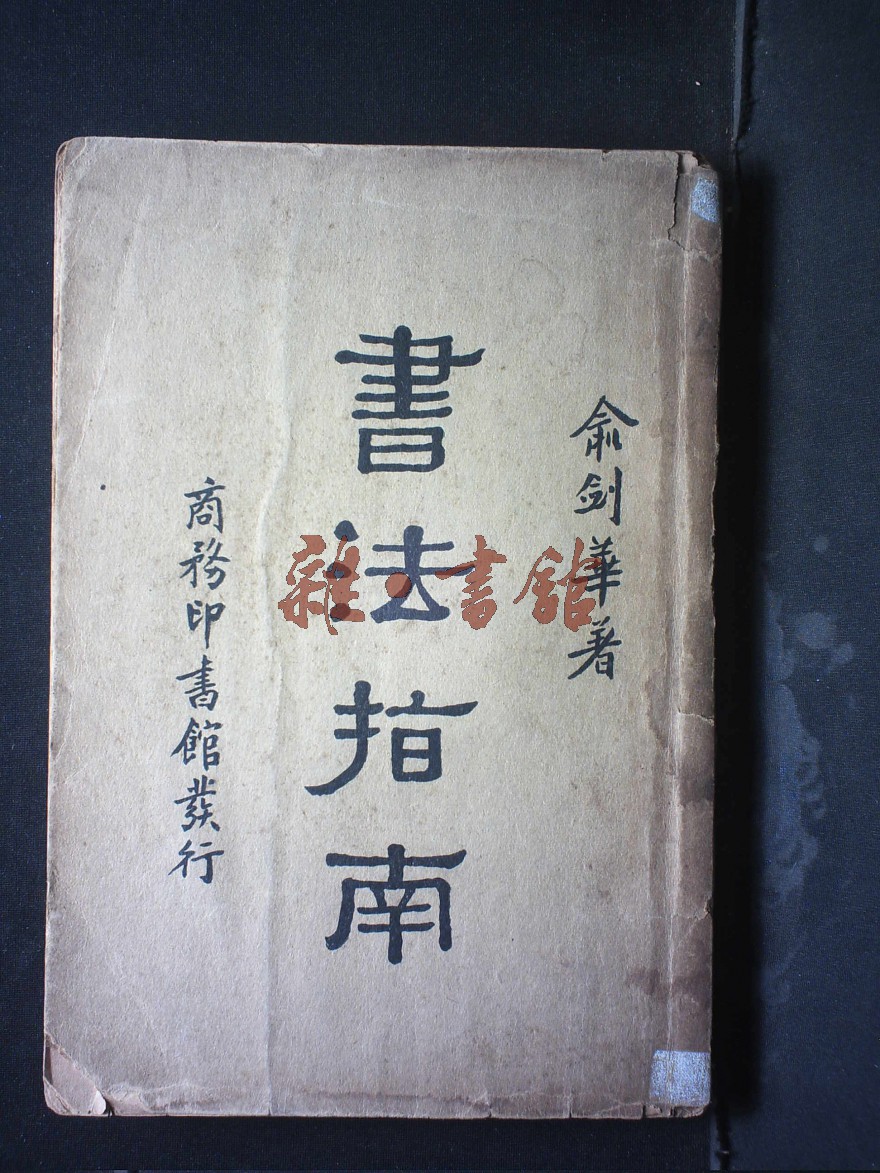 俞剑華著
書法指南
商務印書館發行
雜·書館